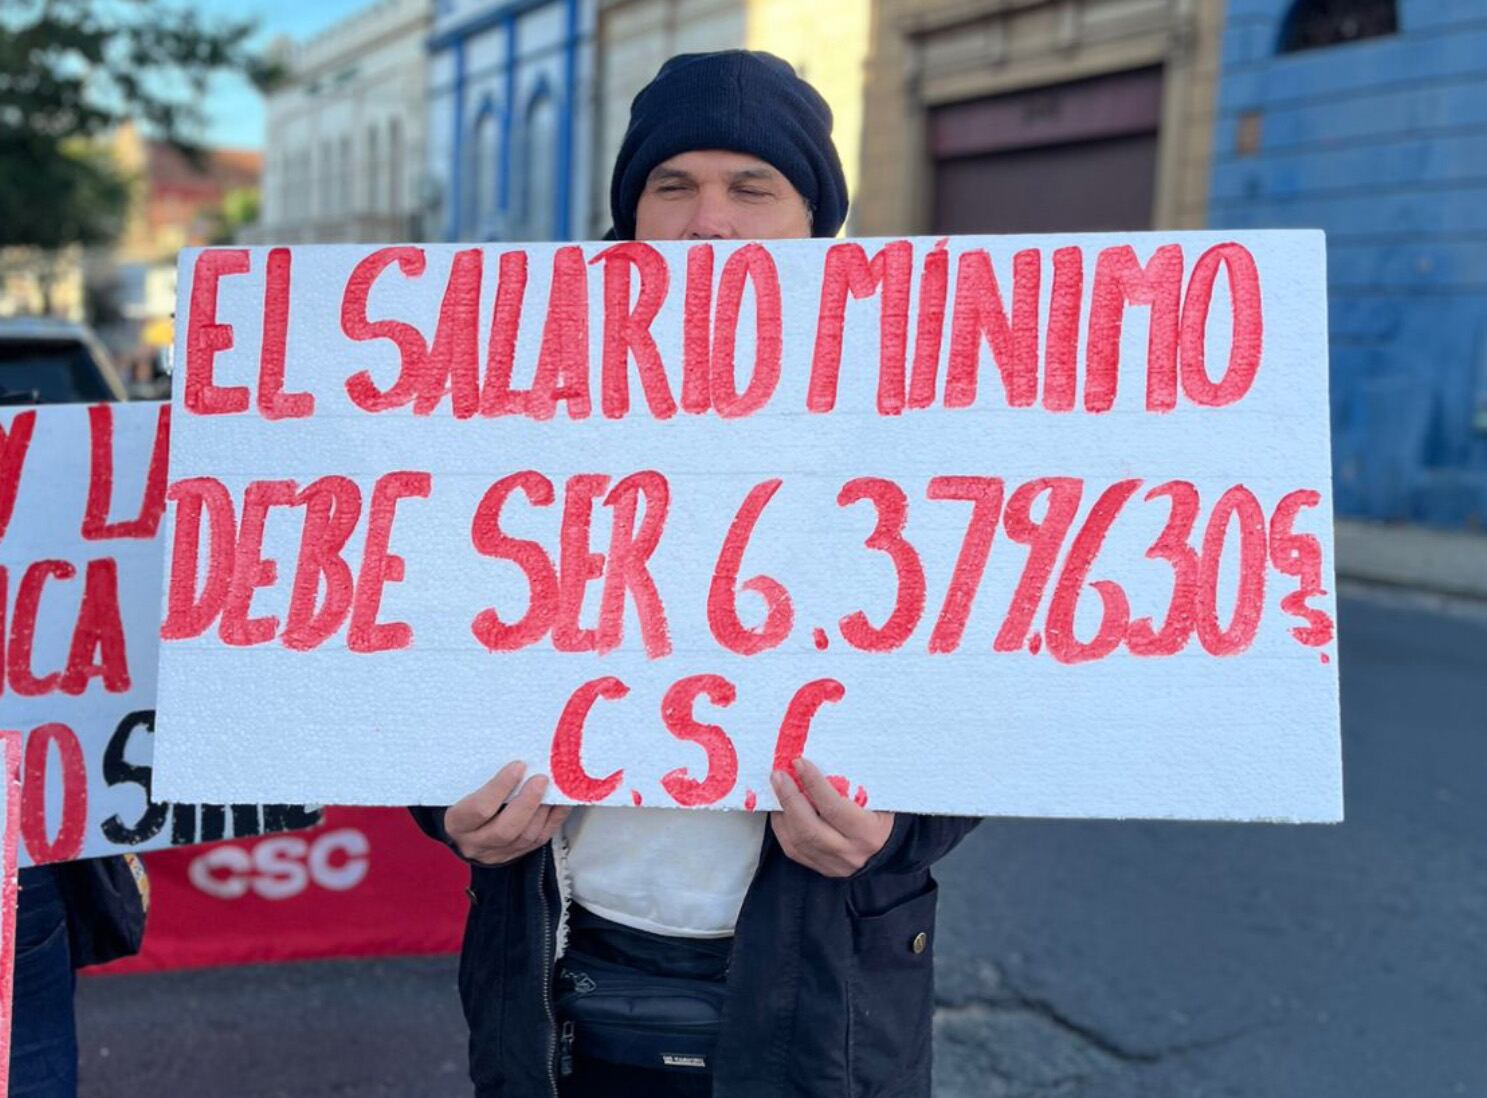 EL SALARIO MÍNIMO
DEBE SER 6.379.630 GS.
C.S.C.
Y LA
ICA
O
CSC